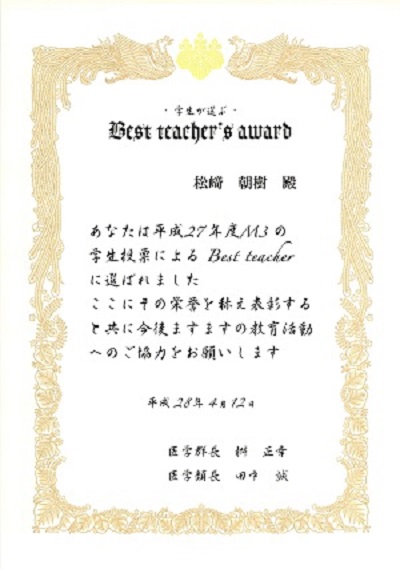 ・学生が選ぶ・
Best teacher's award
松﨑 朝樹 殿
あなたは平成27年度M3の
学生投票による Best teacher
に選ばれました
ここにその栄誉を称え表彰する
と共に今後ますますの教育活動
へのご協力をお願いします
平成28年4月12日
医学群長 桝 正幸
医学類長 田中 誠